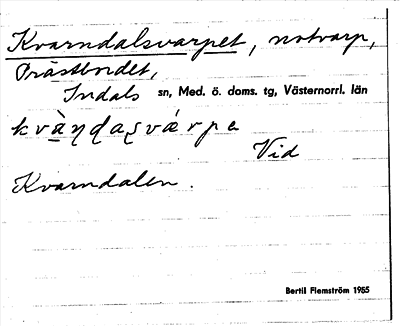 Kvarndalsvarpet, notvarp,
Prästbodet,
Indals sn, Med. ö. doms. tg, Västernorrl. län
kvànḍaṣvárpe
Vid
Kvarndalen.
Bertil Flemström 1985